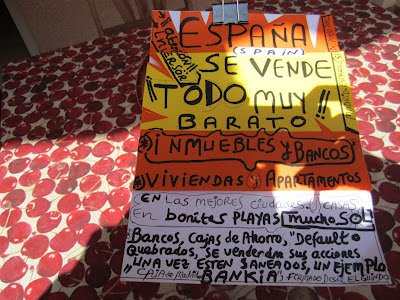 ¡¡ATENCIÓN!!
INVERSOR
ESPAÑA
(SPAIN)
SE VENDE
¡¡TODO MUY!!
BARATO
*INMUEBLES y BANCOS
*VIVIENDAS y APARTAMENTOS
EN LAS MEJORES CIUDADES y CASAS
EN bonitas PLAYAS mucho SOL
Bancos, Cajas de Ahorro, "Default o
Quebrados, SE venderán sus acciones
UNA VEZ ESTEN SANEADOS, UN EJEMPLO
BANKIA